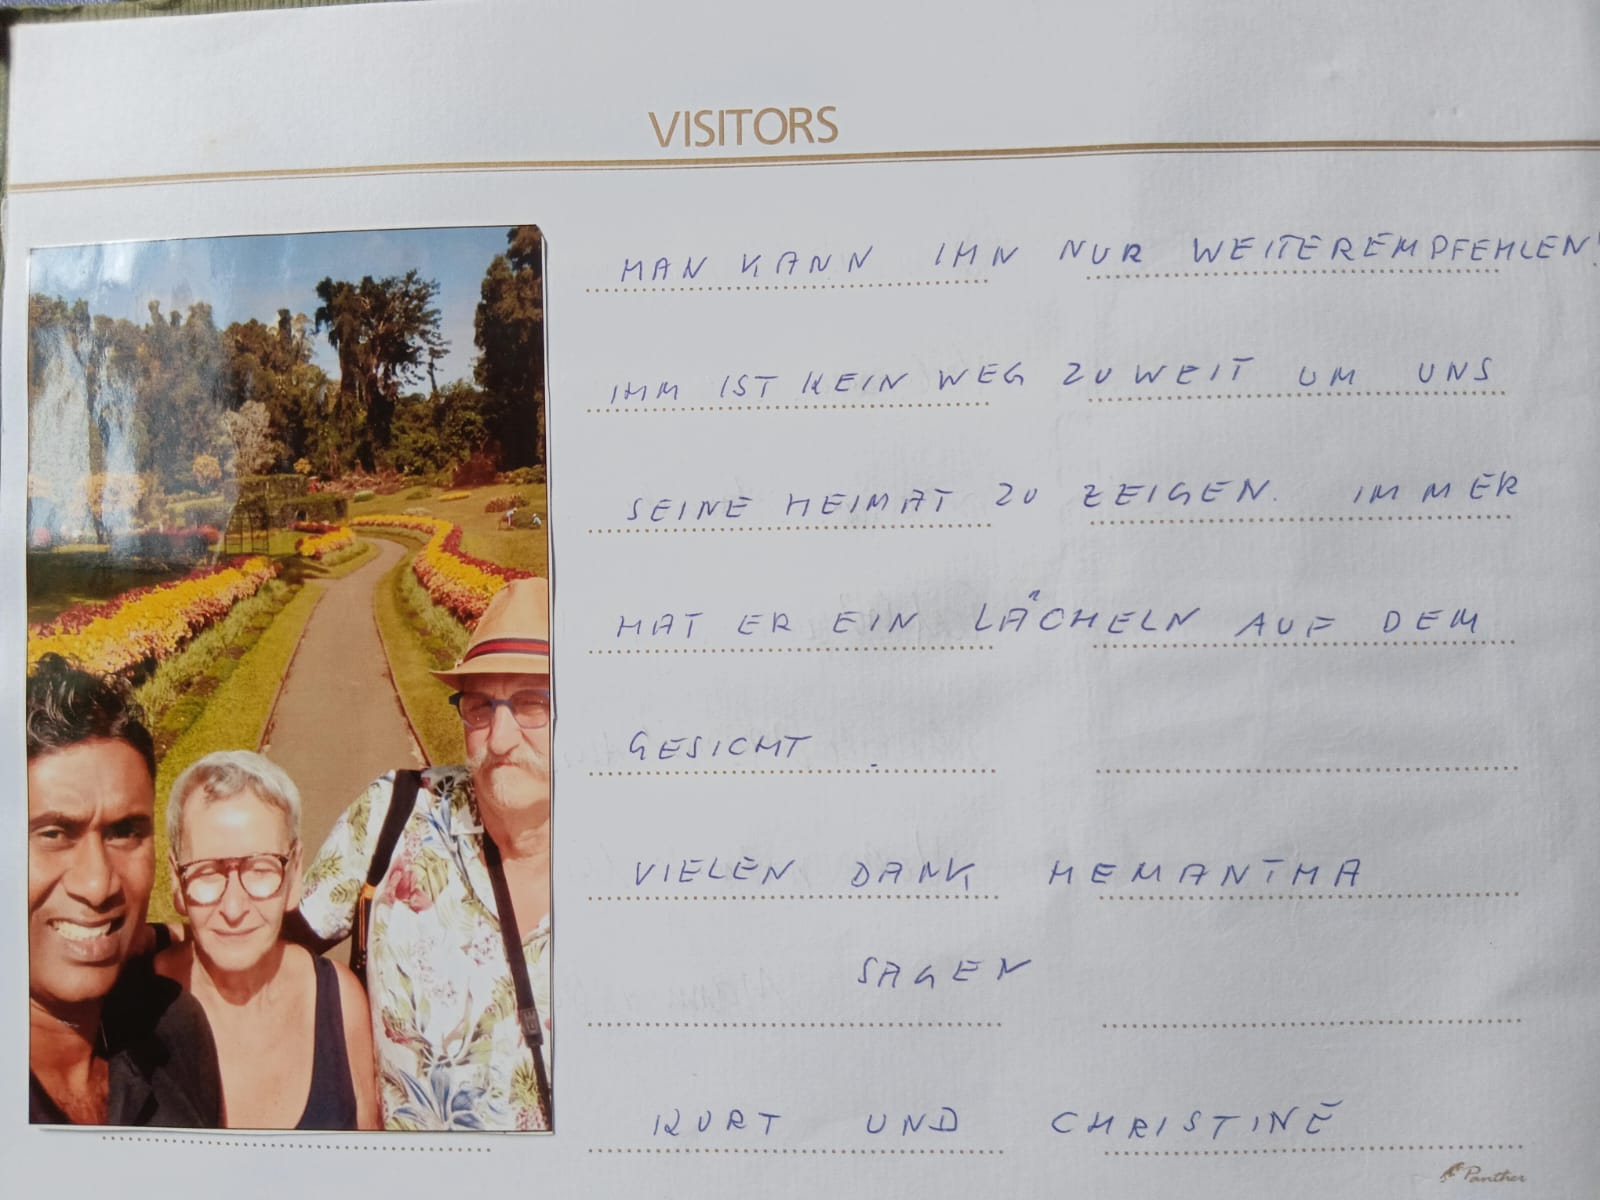 VISITORS
MAN KANN IHN NUR WEITEREMPFEHLEN!
IHM IST KEIN WEG ZU WEIT UM UNS
SEINE HEIMAT ZU ZEIGEN. IMMER
HAT ER EIN LÄCHELN AUF DEM
GESICHT.
VIELEN DANK HEMANTHA
SAGEN
KURT UND CHRISTINE
Panther